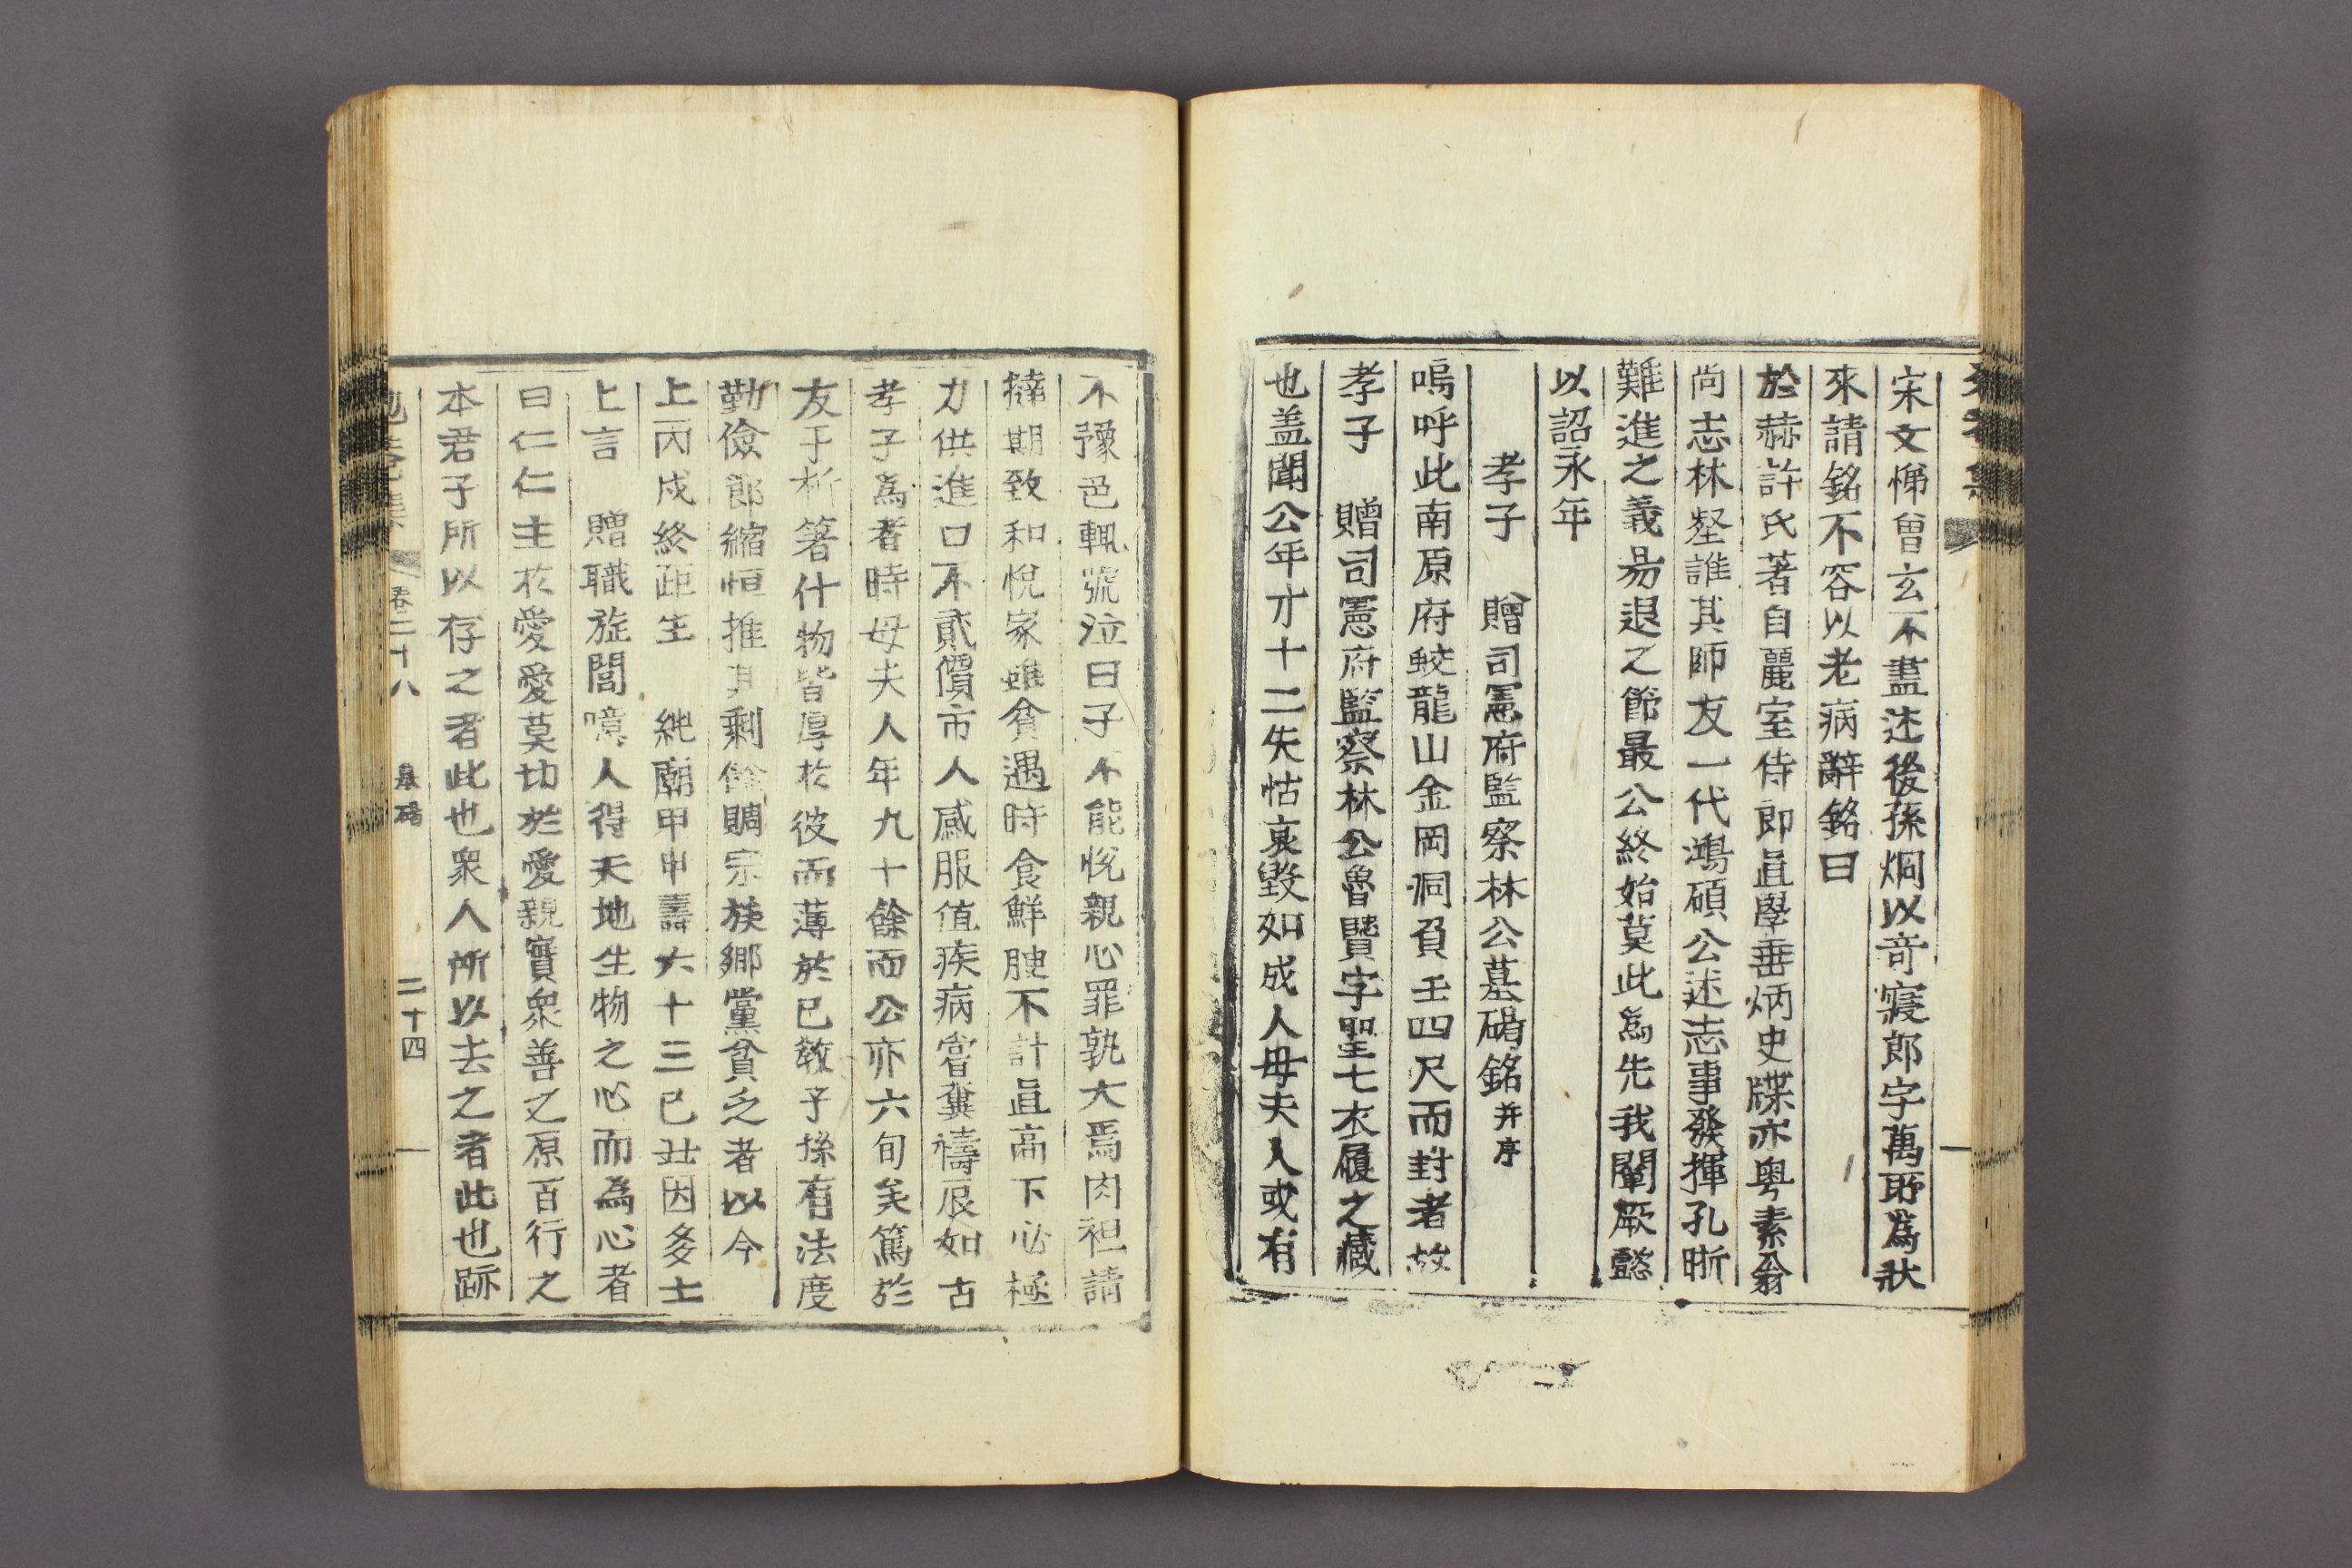 宋文悌曾玄不盡述後孫炯以竒寢郎字萬所爲狀
來請銘不容以老病辭銘曰
於赫許氏著自麗室侍郎直學垂炳史牒亦粤素翁
尚志林壑誰其師友一代鴻碩公述志事發揮孔晰
難進之義易退之節最公終始莫此爲先我闡厥懿
以詔永年
孝子　贈司憲府監察林公墓碣銘并序
嗚呼此南原府蛟龍山金岡洞負壬四尺而封者故
孝子　贈司憲府監察林公魯賢字聖七衣履之藏
也盖聞公年才十二失怙哀毁如成人母夫人或有
不豫色輒號泣曰子不能悅親心罪孰大焉肉袒請
撻期致和悅家雖貧遇時食鮮腴不計直高下必極
力供進口不貳價市人感服值疾病嘗糞禱辰如古
孝子爲者時母夫人年九十餘而公亦六旬矣篤於
友于析箸什物皆厚於彼而薄於己敎子孫有法度
勤儉節縮恒推其剩餘賙宗族鄉黨貧乏者以今
上丙戌終距生　純廟甲申壽六十三己丑因多士
上言　贈職旋閭噫人得天地生物之心而為心者
曰仁仁主於愛愛莫切於愛親實衆善之原百行之
本君子所以存之者此也衆人所以去之者此也跡
卷二十八　墓碣　二十四